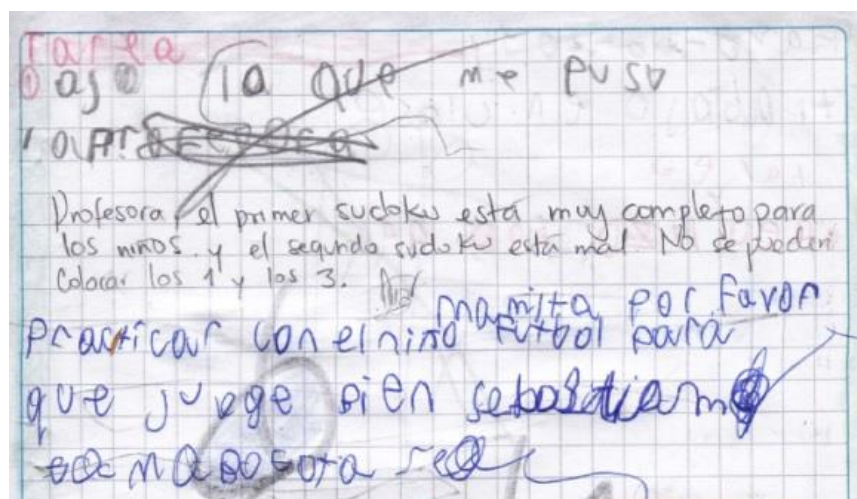 Tarea
la que me puso
la
Profesora, el primer sudoku está muy complejo para
los niños y el segundo sudoku está mal. No se pueden
Colocar los 1 y los 3.
mamita por favor
Practicar con el niño futbol para
que juege bien sebastian